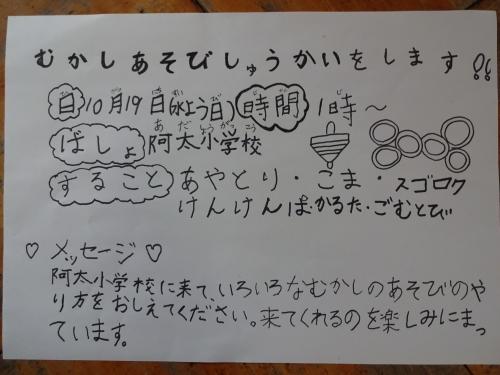 むかしあそびしゅうかいをします!!
日 10月19日(水よう日) 時間 1時〜
ばしょ 阿太小学校
すること あやとり・こま・スゴロク
けんけんぱ・かるた・ごむとび
♡ メッセージ ♡
阿太小学校に来て、いろいろなむかしのあそびのや
り方をおしえてください。来てくれるのを楽しみにまっ
ています。